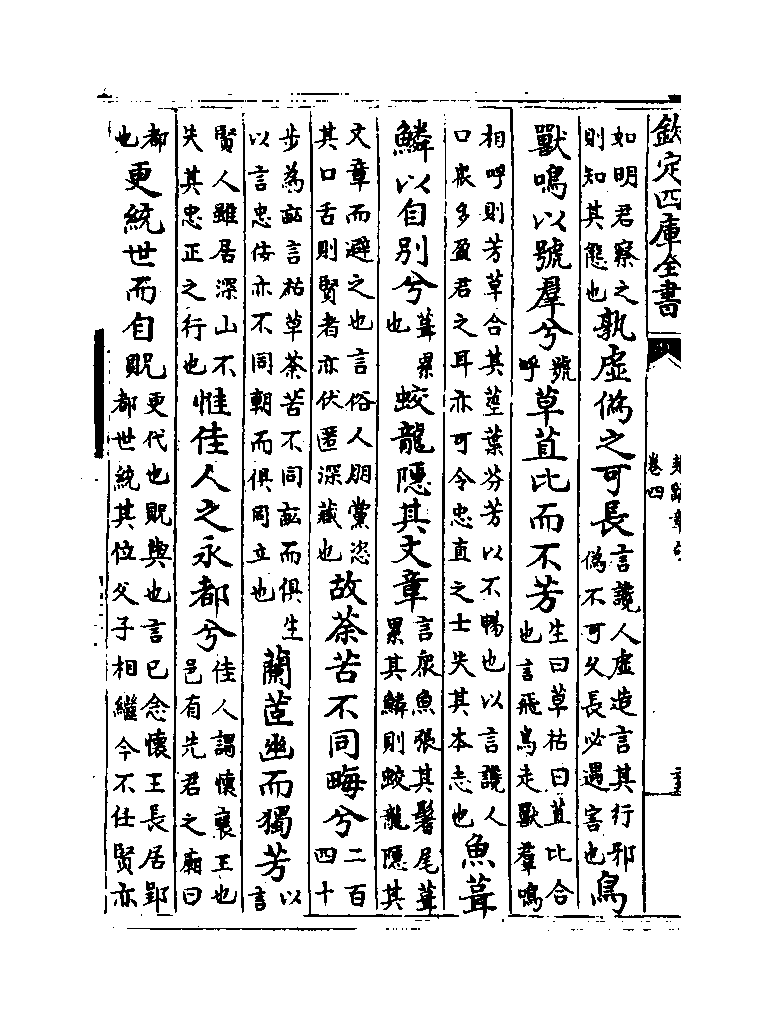 欽定四庫全書
卷四
如明君察之
則知其態也
孰虛偽之可長
言讒人虛造言其行邪
偽不可久長必遇害也
鳥
獸鳴以號羣兮
號
呼
草苴比而不芳
生曰草枯曰苴比合
也言飛鳥走獸羣鳴
相呼則芳草合其莖葉芬芳以不暢也以言讒人
口衆多盈君之耳亦可令忠直之士失其本志也
魚葺
鱗以自別兮
葺累
也
蛟龍隱其文章
言衆魚張其鬐尾葺
累其鱗則蛟龍隱其
文章而避之也言俗人朋黨恣
其口舌則賢者亦伏匿深藏也
故荼苦不同畮兮
二百
四十
步為畝言枯草荼苦不同畝而俱生
以言忠佞亦不同朝而俱同立也
蘭茝幽而獨芳
以
言
賢人雖居深山不
失其忠正之行也
惟佳人之永都兮
佳人謂懷襄王也
邑有先君之廟曰
都
也
更統世而自貺
更代也貺與也言已念懷王長居郢
都世統其位父子相繼今不任賢亦